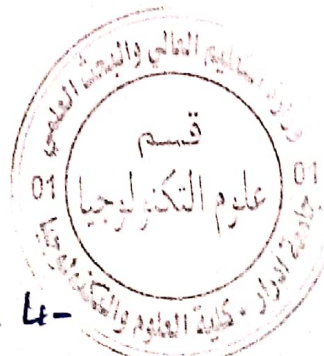 وزارة التعليم العالي والبحث العلمي
قسم
علوم التكنولوجيا
01
01
جامعة ادرار - كلية العلوم والتكنولوجيا
4-